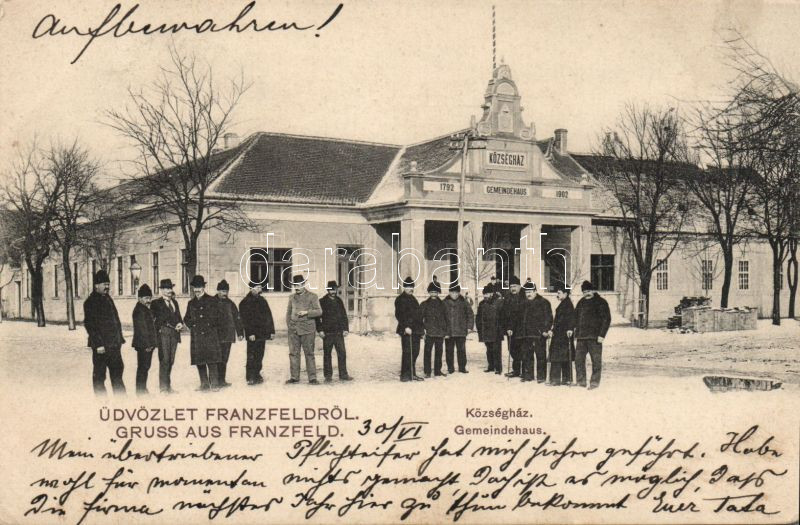 Aufbewahren!
KÖZSÉGHÁZ
1792 GEMEINDEHAUS 1902
darabanth.com
ÜDVÖZLET FRANZFELDRÖL.
GRUSS AUS FRANZFELD. 30/VI
Községház.
Gemeindehaus.
Mein übertriebener Pflichteifer hat mich hieher geführt. Habe
wohl für momentan nichts gemacht, doch ist es möglich, dass
die Firma nächstes Jahr hier zu thun bekommt Euer Tata